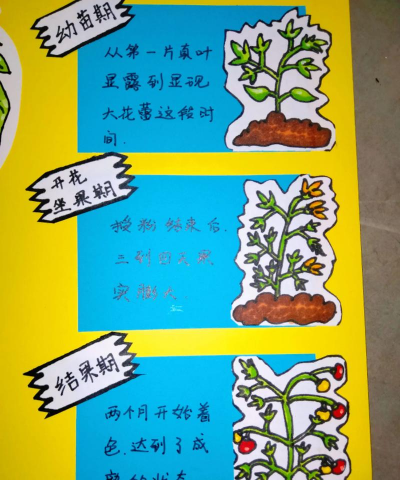 幼苗期
从第一片真叶
显露到显现
大花蕾这段时
间.
开花
坐果期
授粉结束后.
三到四天果
实膨大.
结果期
两个月开始着
色.达到了成
熟的状态